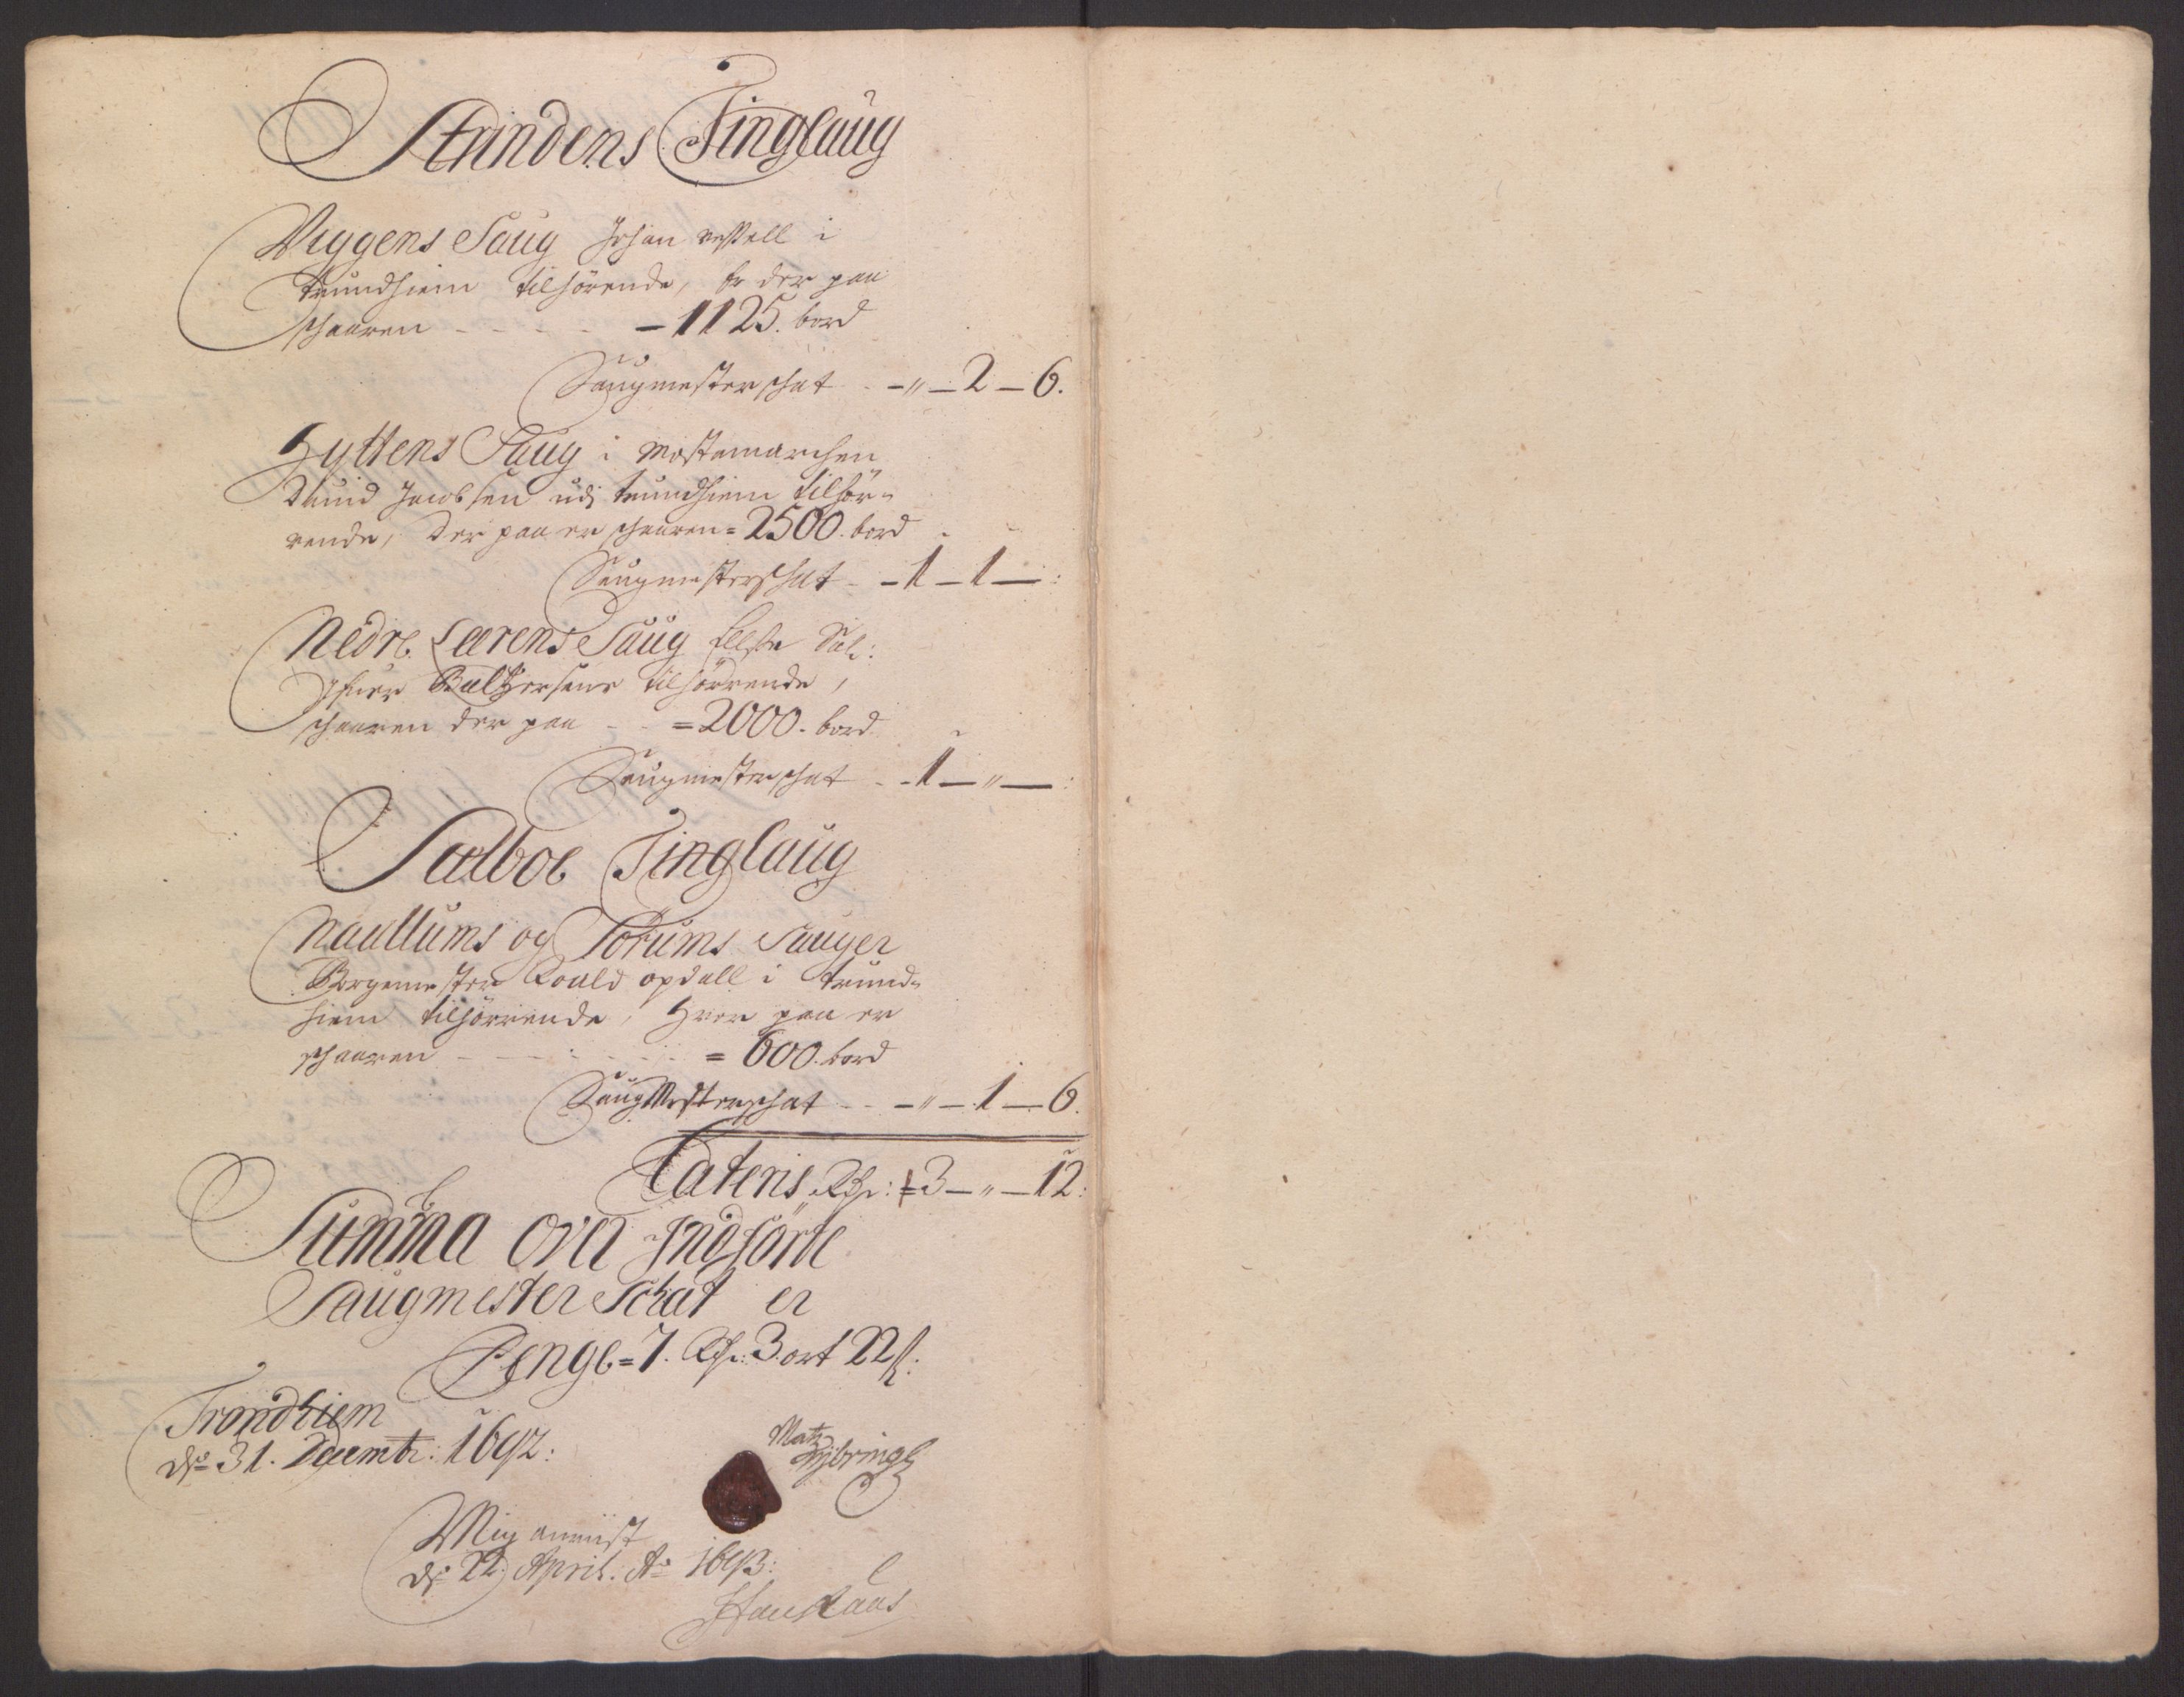 Strindens Tinglaug
Wiggens Saug Johan i
trundhiem tilhörende, Er der paa
schaaren - - - - - 1125. bord
Saugmesterschat - - " - 2 - 6.
Hyttens Saug i Mostamarchen
Dauid Jacobsen udj trundhiem tilhör-
rende, der paa er schaaren = 2500. bord
Saugmesterschat - - 1 - 1 - :
Nedre Leerens Saug Sal:
Baltzersens tilhörrende,
schaaren der paa - - = 2000. bord
Saugmesterschat - - 1 - " - :
Sælboe Tinglaug
Naullums og Torums Sauger
Borgemester Roald opdall i trund-
hiem tilhörrende, Hvor paa er
schaaren - - - - - = 600. bord
SaugMesterschat - - - " - 1 - 6.
Lateris Rdr: 3 - " - 12:
Summa over Indförte
Saugmester Schat er
Penge = 7. Rdr: 3 ort 22 s:
Trondhiem
ds 31. Decembr: 1692:
Matz
Mig anviist
ds 22 April. Ao 1693: